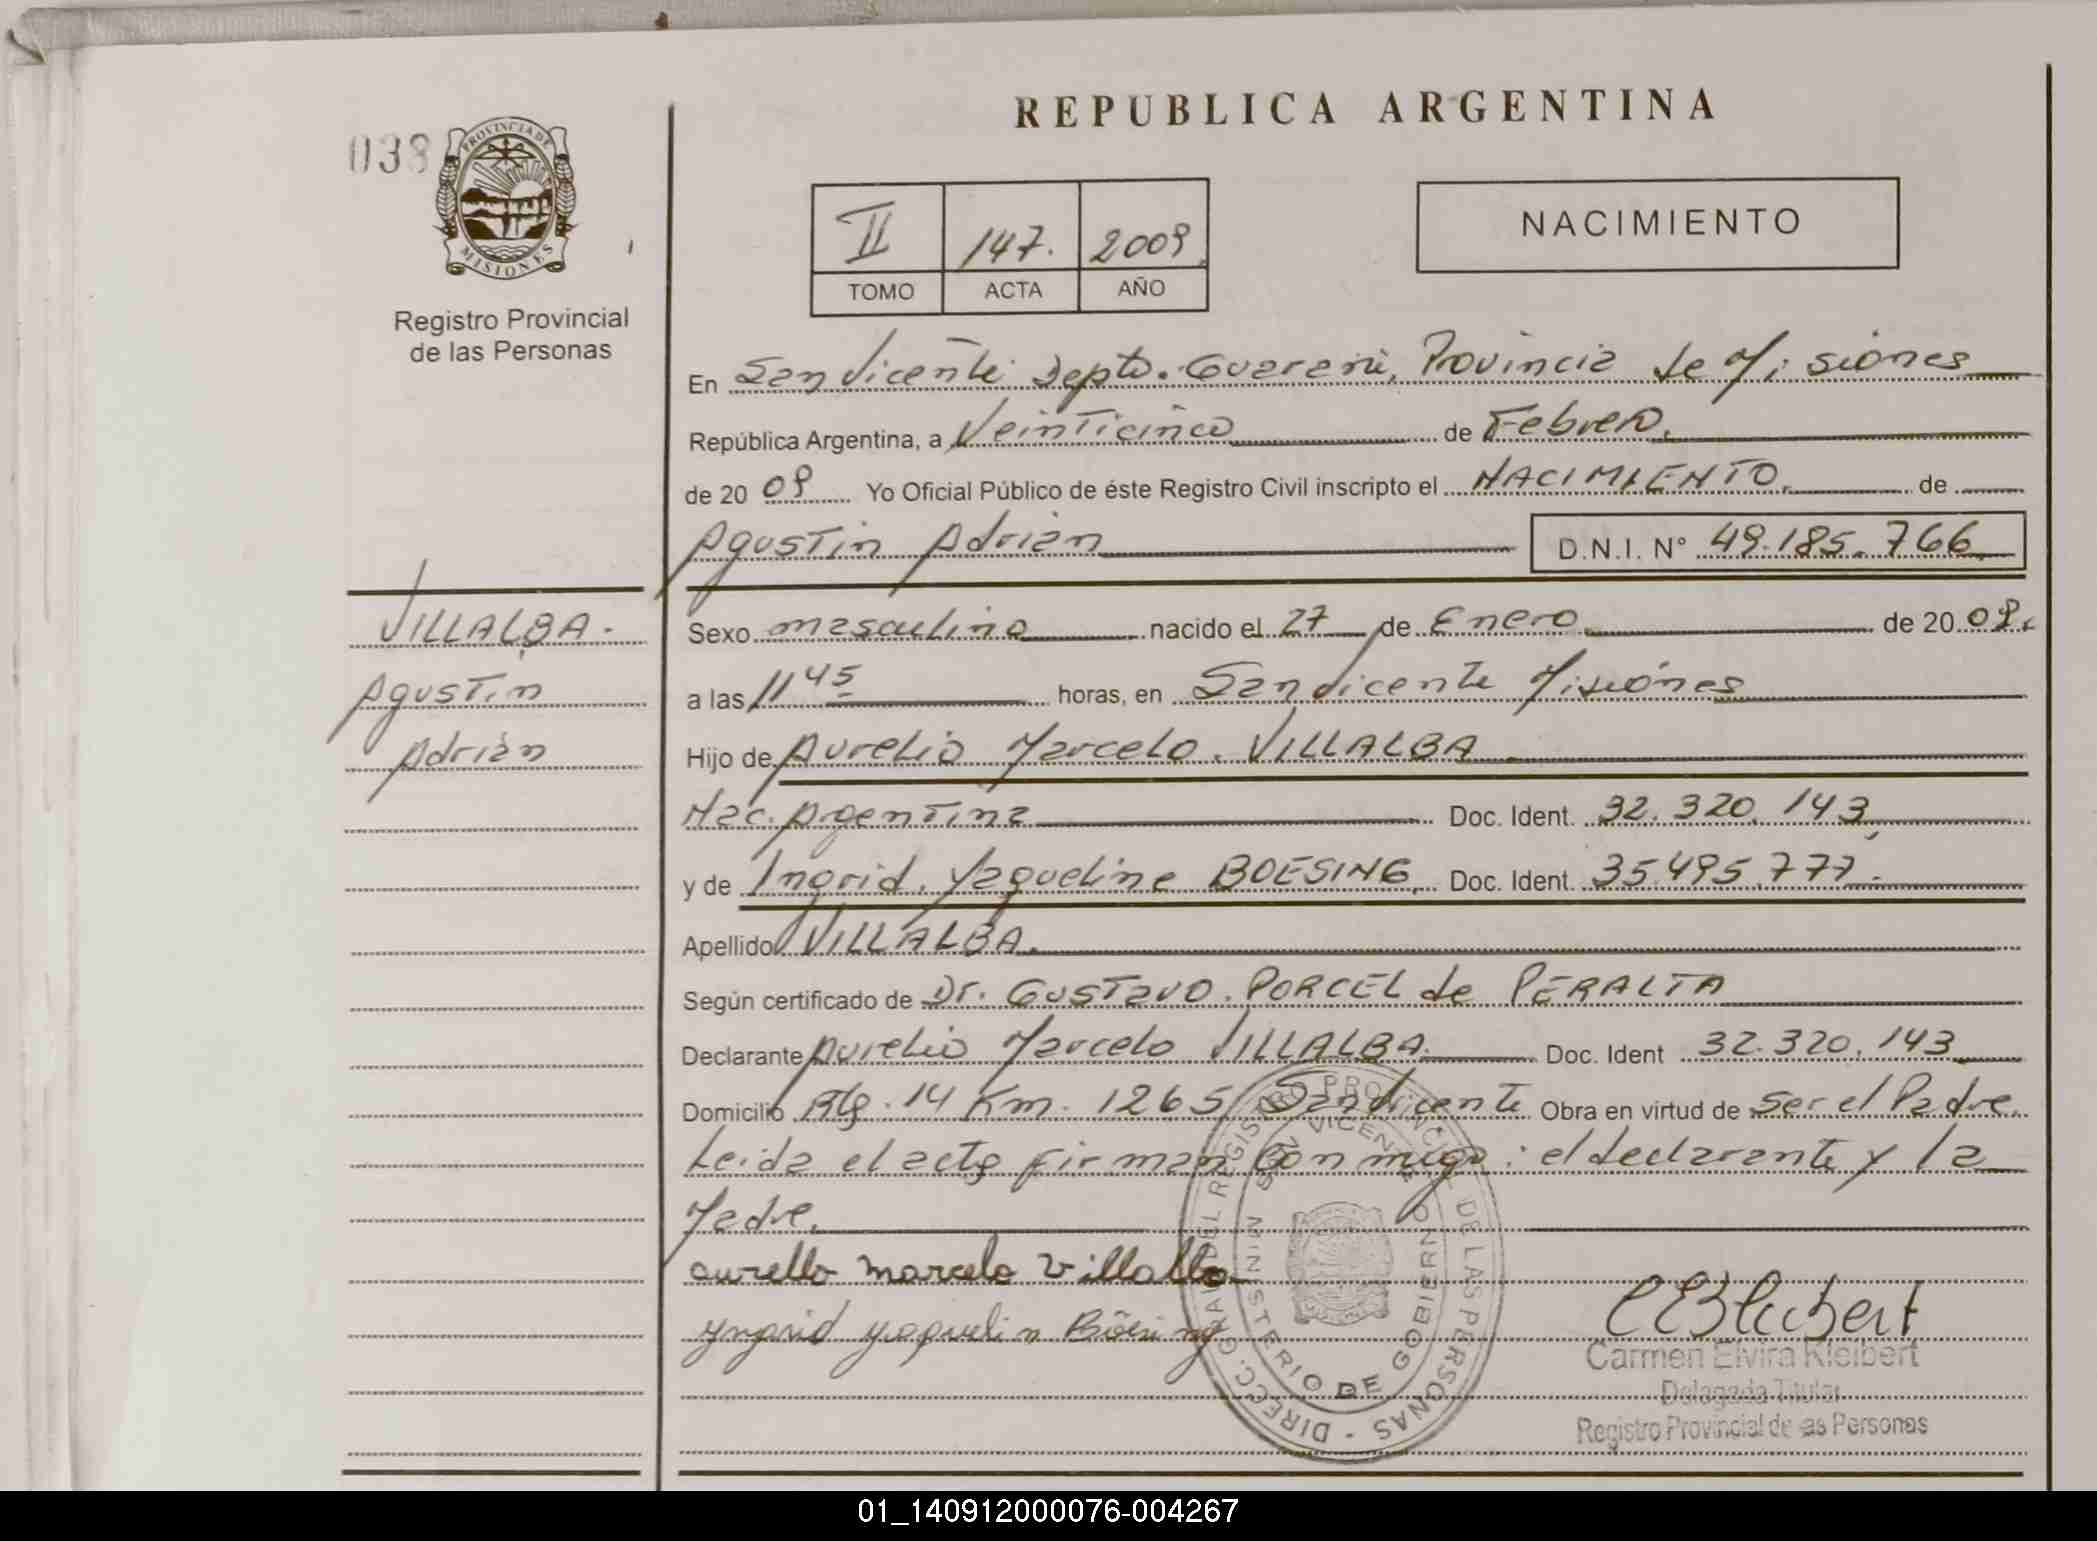 REPUBLICA ARGENTINA
038
PROVINCIA DE
MISIONES
Registro Provincial
de las Personas
II 147. 2009
TOMO ACTA AÑO
NACIMIENTO
En San Vicente Depto. Guaraní, Provincia de Misiones
República Argentina, a Veinticinco de Febrero.
de 20 09 Yo Oficial Público de éste Registro Civil inscripto el NACIMIENTO. de
Agustin Adrián D.N.I. N° 49.185.766
VILLALBA.
Agustin
Adrián
Sexo masculino nacido el 27 de Enero de 20 09.
a las 11 45 horas, en San Vicente Misiones
Hijo de Aurelio Marcelo. VILLALBA
Nac. Argentina Doc. Ident. 32.320.143
y de Ingrid. Yaqueline BOESING. Doc. Ident. 35.495.777.
Apellido VILLALBA.
Según certificado de Dr. Gustavo. PORCEL de PERALTA
Declarante Aurelio Marcelo VILLALBA. Doc. Ident 32.320.143
Domicilio Rta. 14 Km. 1265 San Vicente Obra en virtud de ser el Padre.
Leida el acta firman conmigo: el declarante y la
Madre.
aurelio marcelo villalba
yngrid yaquelin Böesing
CEKleibert
Carmen Elvira Kleibert
Delegada Titular
Registro Provincial de las Personas
DIRECC. GRAL. DEL REGISTRO PROVINCIAL DE LAS PERSONAS -
SAN VICENTE
MINISTERIO DE GOBIERNO
01_140912000076-004267